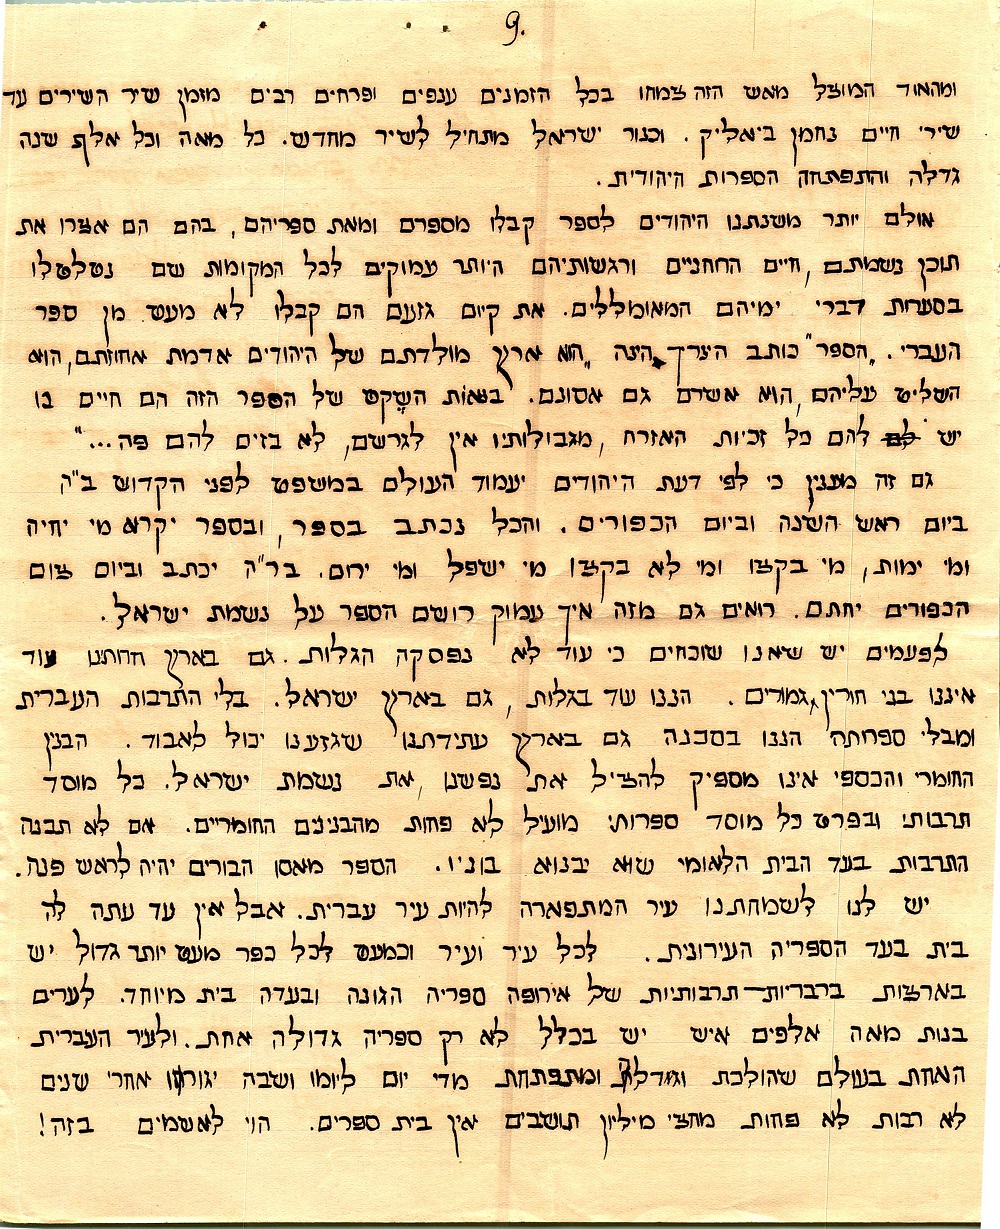 9.
ומהאוד המוצל מאש הזה צמחו בכל הזמנים ענפים ופרחים רבים מזמן שיר השירים עד
שירי חיים נחמן ביאליק. וכנור ישראל מתחיל לשיר מחדש. כל מאה וכל אלף שנה
גדלה והתפתחה הספרות היהודית.
אולם יותר משנתנו היהודים לספר קבלו מספרם ומאת ספריהם, בהם הם אצרו את
תוכן נשמתם, חיים הרוחניים ורגשותיהם היותר עמוקים לכל המקומות שם נטלטלו
בסערות דברי ימיהם המאומללים. את קיום גזעם הם קבלו לא מעט מן ספר
העברי. „הספר" כותב הינרך הינה „הוא ארץ מולדתם של היהודים אדמת אחוזתם, הוא
השליט עליהם, הוא אשרם גם אסונם. בנאות השקט של הספר הזה הם חיים בו
יש להם כל זכיות האזרח, מגבולותיו אין לגרשם, לא בזים להם פה..."
גם זה מענין כי לפי דעת היהודים יעמוד העולם במשפט לפני הקדוש ב"ה
ביום ראש השנה וביום הכפורים. והכל נכתב בספר, ובספר יקרא מי יחיה
ומי ימות, מי בקצו ומי לא בקצו מי ישפל ומי ירום. בר"ה יכתב וביום צום
הכפורים יחתם. רואים גם מזה איך עמוק רושם הספר על נשמת ישראל.
לפעמים יש שאינו שוכחים כי עוד לא נפסקה הגלות. גם בארץ חרותינו עוד
איננו בני חורין גמורים. הננו עוד בגלות, גם בארץ ישראל. בלי התרבות העברית
ומבלי ספרותה הננו בסכנה גם בארץ עתידתנו שגזענו יכול לאבוד. הבנין
החומרי והכספי אינו מספיק להציל את נפשנו, את נשמת ישראל. כל מוסד
תרבותי ובפרט כל מוסד ספרותי מועיל לא פחות מהבנינים החומריים. אם לא תבנה
התרבות בעד הבית הלאומי שוא יבנוא בוניו. הספר מאסו הבורים יהיה לראש פנה.
יש לנו לשמחתנו עיר המתפארה להיות עיר עברית. אבל אין עד עתה לה
בית בעד הספריה העירונית. לכל עיר ועיר וכמעט לכל כפר מעט יותר גדול יש
בארצות ברבריות–תרבותיות של אירופה ספריה הגונה ובעדה בית מיוחד. לערים
בנות מאה אלפים איש יש בכלל לא רק ספריה גדולה אחת. ולעיר העברית
האחת בעולם שהולכת וגדלה ומתפתחת מדי יום ליומו ושבה יגורו אחרי שנים
לא רבות לא פחות מחצי מיליון תושבים אין בית ספרים. הוי לאשמים בזה!